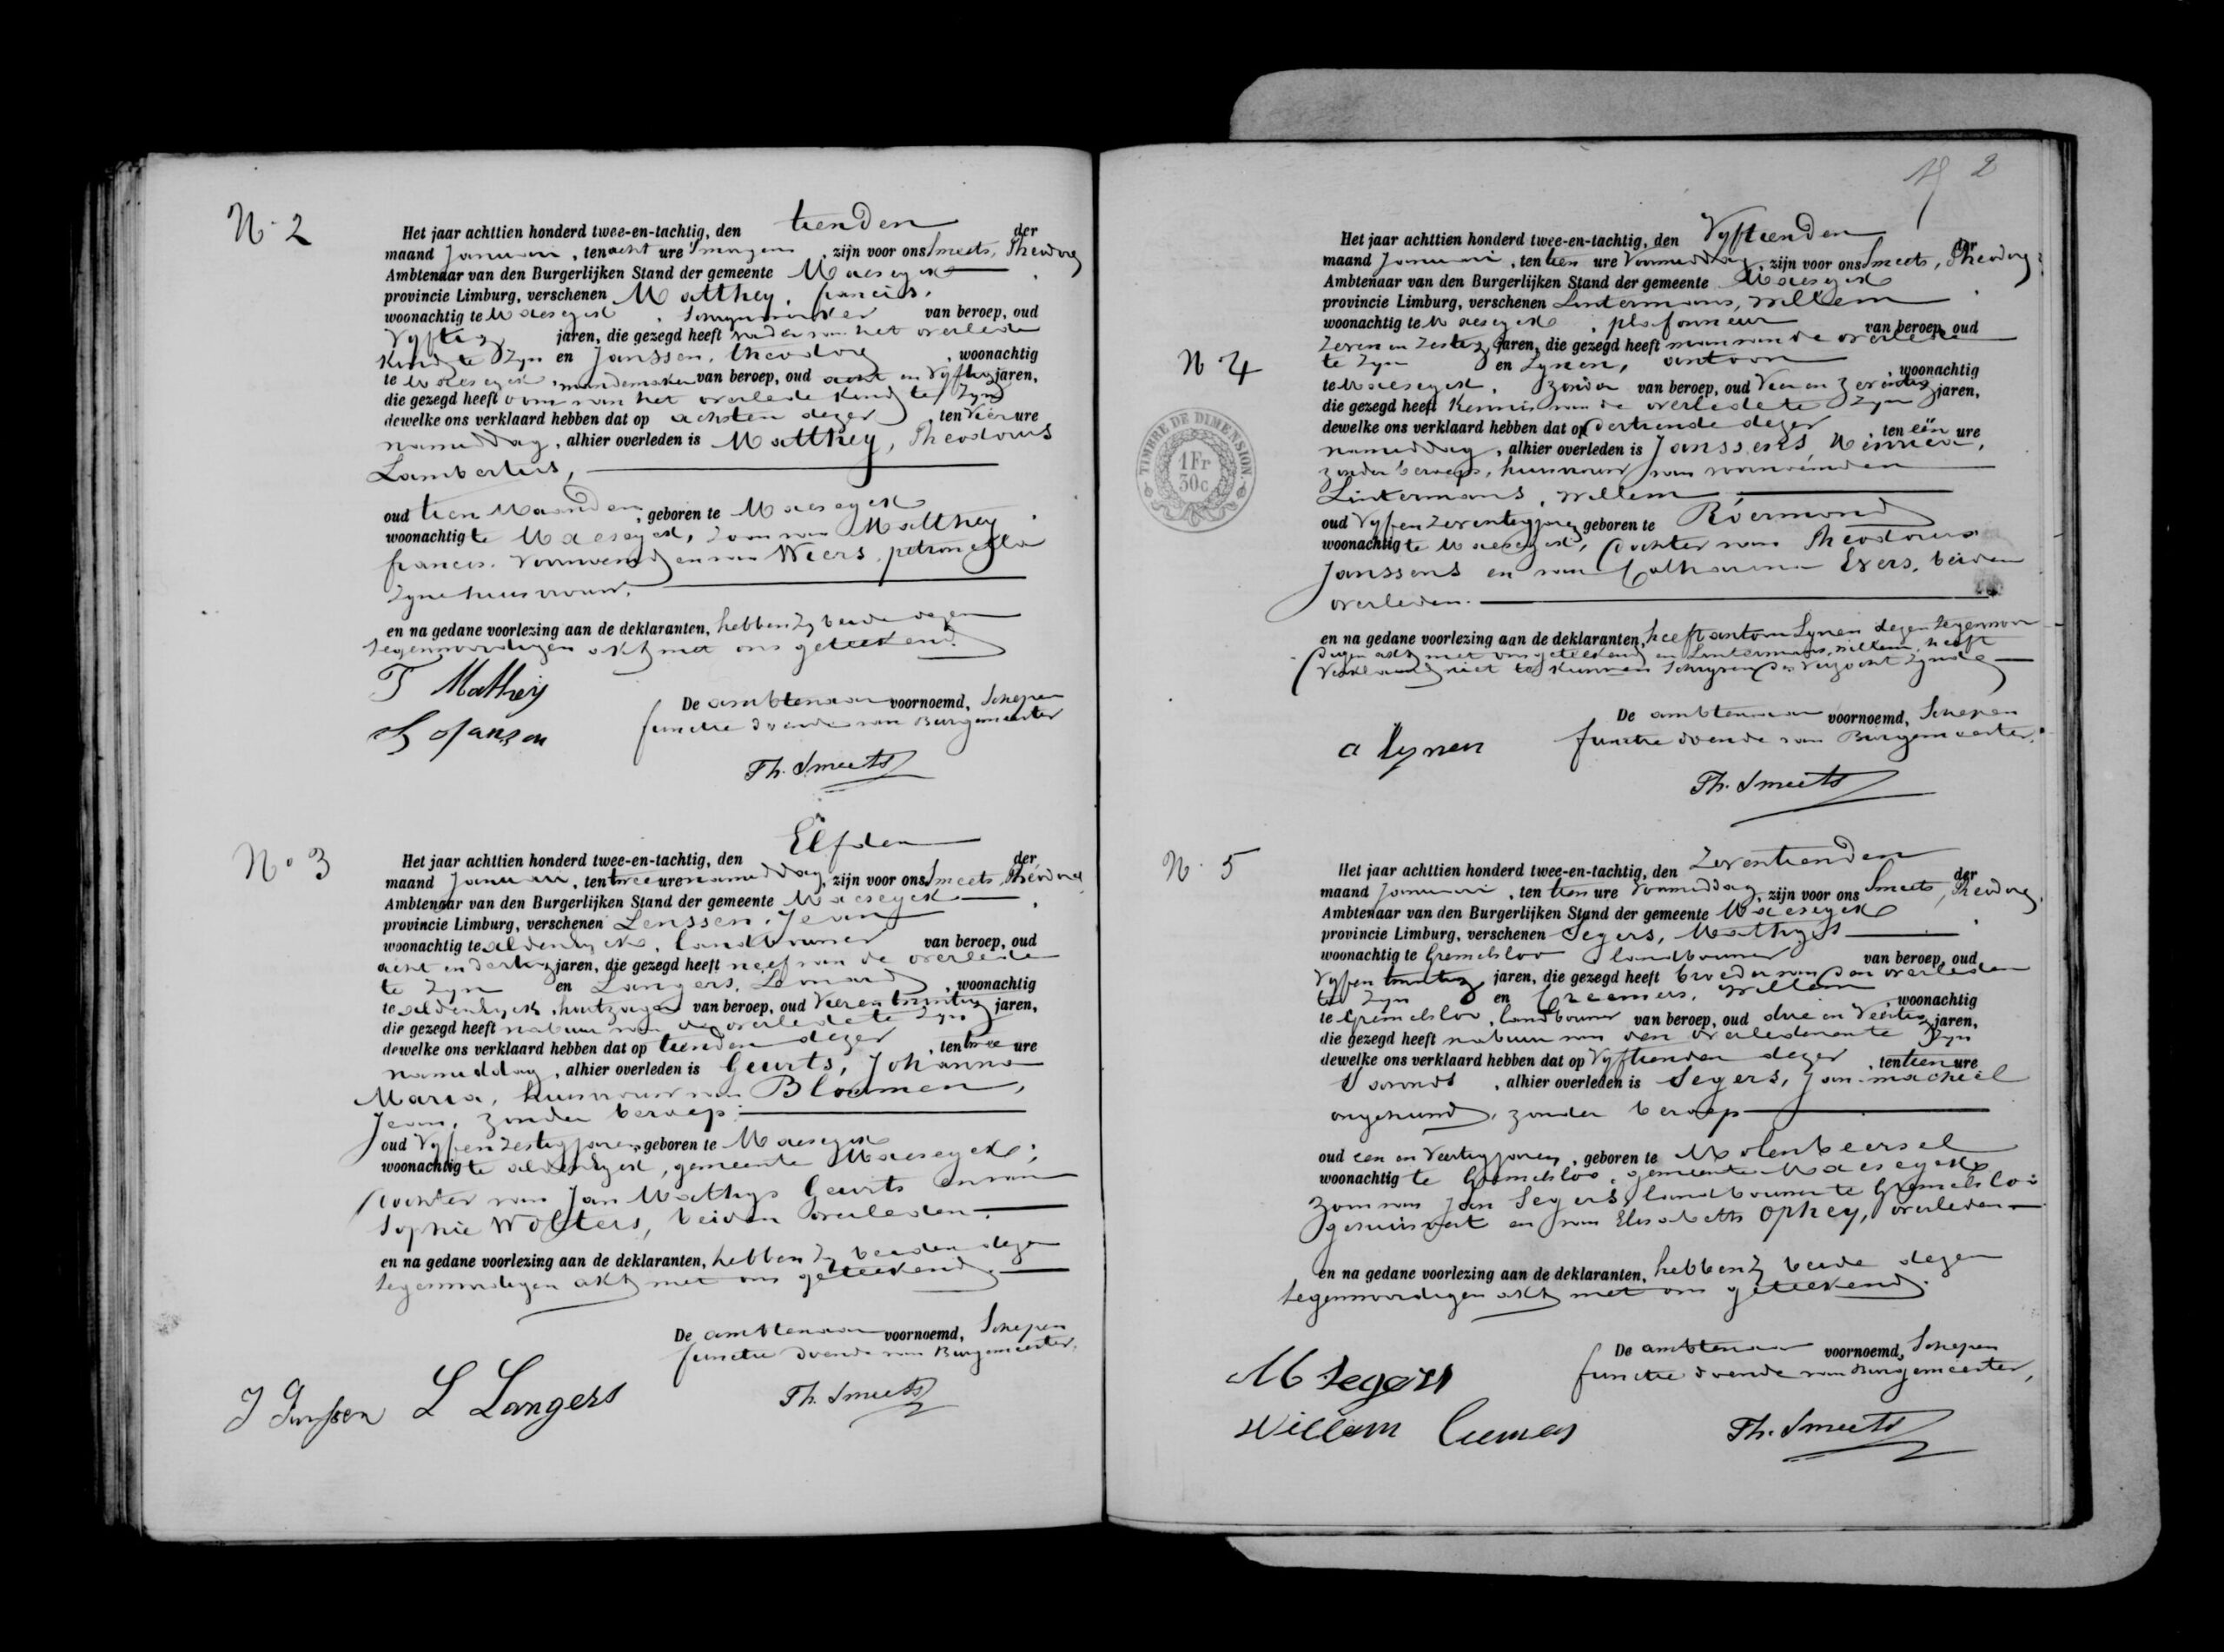 N. 2
Het jaar achttien honderd twee-en-tachtig, den tienden der
maand Januari, ten acht ure smorgens, zijn voor ons Smeets, Theodorg
Ambtenaar van den Burgerlijken Stand der gemeente Maeseyck
provincie Limburg, verschenen Matthey, francis,
woonachtig te Maeseyck, van beroep, oud
Vyftig jaren, die gezegd heeft vader van het overlede
Kind te Zyn en Janssen, theodorg, woonachtig
te Maeseyck, mandemaker van beroep, oud acht en Vyftig jaren,
die gezegd heeft oom van het overlede Kind te Zyn
dewelke ons verklaard hebben dat op achsten dezer, ten Vier ure
namiddag, alhier overleden is Matthey, Theodorus
Lambertus,
oud tien Maanden, geboren te Maeseyck
woonachtig te Maeseyck, Zoon van Matthey
francis. Voornoemd en van Weers, petronella
Zyne huisvrouw.
en na gedane voorlezing aan de deklaranten, hebben Zy beide dezen
tegenwoordigen akt met ons geteekend.
T Mathey
De ambtenaar voornoemd, Schepen
functie doende van Burgemeester
Jansen
Th. Smeets
N° 3
Het jaar achttien honderd twee-en-tachtig, den Elfden der
maand Januari, ten twee ure namiddag, zijn voor ons Smeets, Theodorg
Ambtenaar van den Burgerlijken Stand der gemeente Maeseyck
provincie Limburg, verschenen Lenssen, Jean
woonachtig te aldeneyck, landbouwer van beroep, oud
acht en dertig jaren, die gezegd heeft neef van de overlede
te Zyn en Langers, Leonard, woonachtig
te aldeneyck, houtzager van beroep, oud Vier en twintig jaren,
die gezegd heeft nabuur van de overledete Zyn
dewelke ons verklaard hebben dat op tienden dezer, ten twee ure
namiddag, alhier overleden is Geurts, Johanna
Maria, huisvrouw van Bloemen,
Jean, zonder beroep
oud Vyf en Zestig jaren, geboren te Maeseyck
woonachtig te aldeneyck, gemeente Maeseyck;
dochter van Jan Mathys Geurts en van
Sophie Wolters, beiden overleden.
en na gedane voorlezing aan de deklaranten, hebben Zy beiden dezen
tegenwoordigen akt met ons geteekend
De ambtenaar voornoemd, Schepen
functie doende van Burgemeester,
J L Langers
Th. Smeets
2
Het jaar achttien honderd twee-en-tachtig, den Vyftienden der
maand Januari, ten tien ure Voormiddag, zijn voor ons Smeets, Theodorg
Ambtenaar van den Burgerlijken Stand der gemeente Maeseyck
provincie Limburg, verschenen Lintermans, Willem
woonachtig te Maeseyck, plafonneur van beroep, oud
Zeven en Zestig jaren, die gezegd heeft man van de overlede
N 4
te Zyn en Lynen, antoon, woonachtig
te Maeseyck, Zonder van beroep, oud Vier en Zeventig jaren,
die gezegd heeft Kennis van de overledete Zyn
dewelke ons verklaard hebben dat op dertiende dezer, ten één ure
namiddag, alhier overleden is Janssens,
zonder beroep, huisvrouw van voornoemden
Lintermans, Willem
oud Vyf en Zeventig jaren geboren te Roermond
woonachtig te Maeseyck, dochter van Theodorus
Janssens en van Catharina Evers, beiden
overleden.
en na gedane voorlezing aan de deklaranten, heeft antoon Lynen dezen tegenwoor
digen akt met ons geteekend en Lintermans, willem, heeft
Verklaard niet te Kunnen Schryven Verzocht Zynde
TIMBRE DE DIMENSION.
1Fr
30c
De ambtenaar voornoemd, Schepen
functie doende van Burgemeester.
a Lynen
Th. Smeets
N. 5
Het jaar achttien honderd twee-en-tachtig, den Zeventienden der
maand Januari, ten tien ure Voormiddag, zijn voor ons Smeets, Theodorg,
Ambtenaar van den Burgerlijken Stand der gemeente Maeseyck
provincie Limburg, verschenen Segers, Mathys
woonachtig te Gremelsloo landbouwer van beroep, oud
Vyf en twintig jaren, die gezegd heeft broeder van den overleden
te Zyn en Creemers, Willem, woonachtig
te Gremelsloo, landbouwer van beroep, oud drie en Veertig jaren,
die gezegd heeft nabuur van den overledenente Zyn
dewelke ons verklaard hebben dat op Vyftienden dezer, ten tien ure
Savonds, alhier overleden is Segers, Jan-macheel
ongehuwd, zonder beroep
oud een en Veertig jaren, geboren te Molenbeersel
woonachtig te Gremelsloo, gemeente Maeseyck,
Zoon van Jan Segers, landbouwer te Gremelsloo
gehuisvest en van Elisabeth Ophey, overleden
en na gedane voorlezing aan de deklaranten, hebben Zy beide dezen
tegenwoordigen akt met ons geteekend.
De ambtenaar voornoemd, Schepen
functie doende van Burgemeester,
M Segers
Willem
Th. Smeets